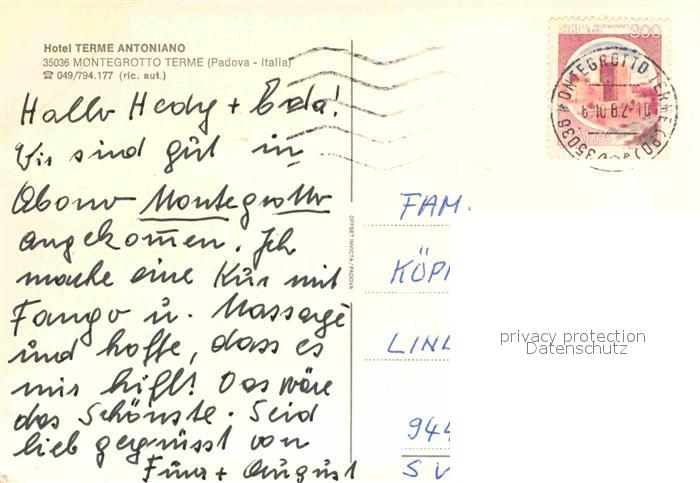 Hotel TERME ANTONIANO
35036 MONTEGROTTO TERME (Padova - Italia)
☎ 049/794.177 (ric. aut.)
Hallo Hedy +
Wir sind gut in
Abano Montegrotto
angekommen. Ich
mache eine Kur mit
Fango u. Massage
und hoffe, dass es
mir hilft! Das wäre
das Schönste. Seid
lieb gegrüsst von
+ August
OFFSET INVICTA / PADOVA
CASTELLO NORMANNO
SVEVO BARI
300
35036 MONTEGROTTO TERME (PD)
6.10.82-10
FAM.
KÖP
LIN
944
SV
privacy protection
Datenschutz